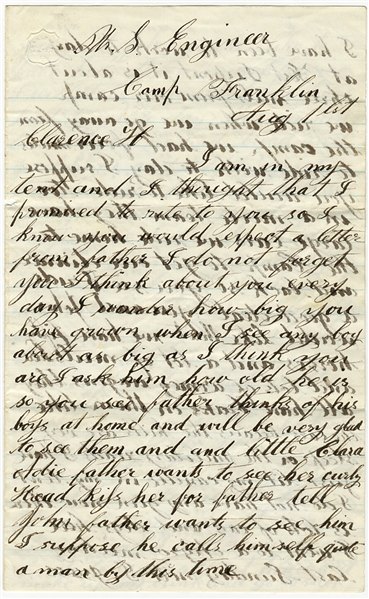 U. S. Engineer
Camp Franklin
Aug 1st
Clarence H
I am in my
tent and I thought that I
promised to rite to you so I
know you would expect a letter
from father I do not forget
you I think about you every
day I wonder how big you
have grown when I see any boy
about as big as I think you
are I ask him how old he is
so you see father thinks of his
boys at home and will be very glad
to see them and and little Clara
Adie father wants to see her curly
Head Kiss her for father tell
John father wants to see him
I suppose he calls himself quite
a man by this time